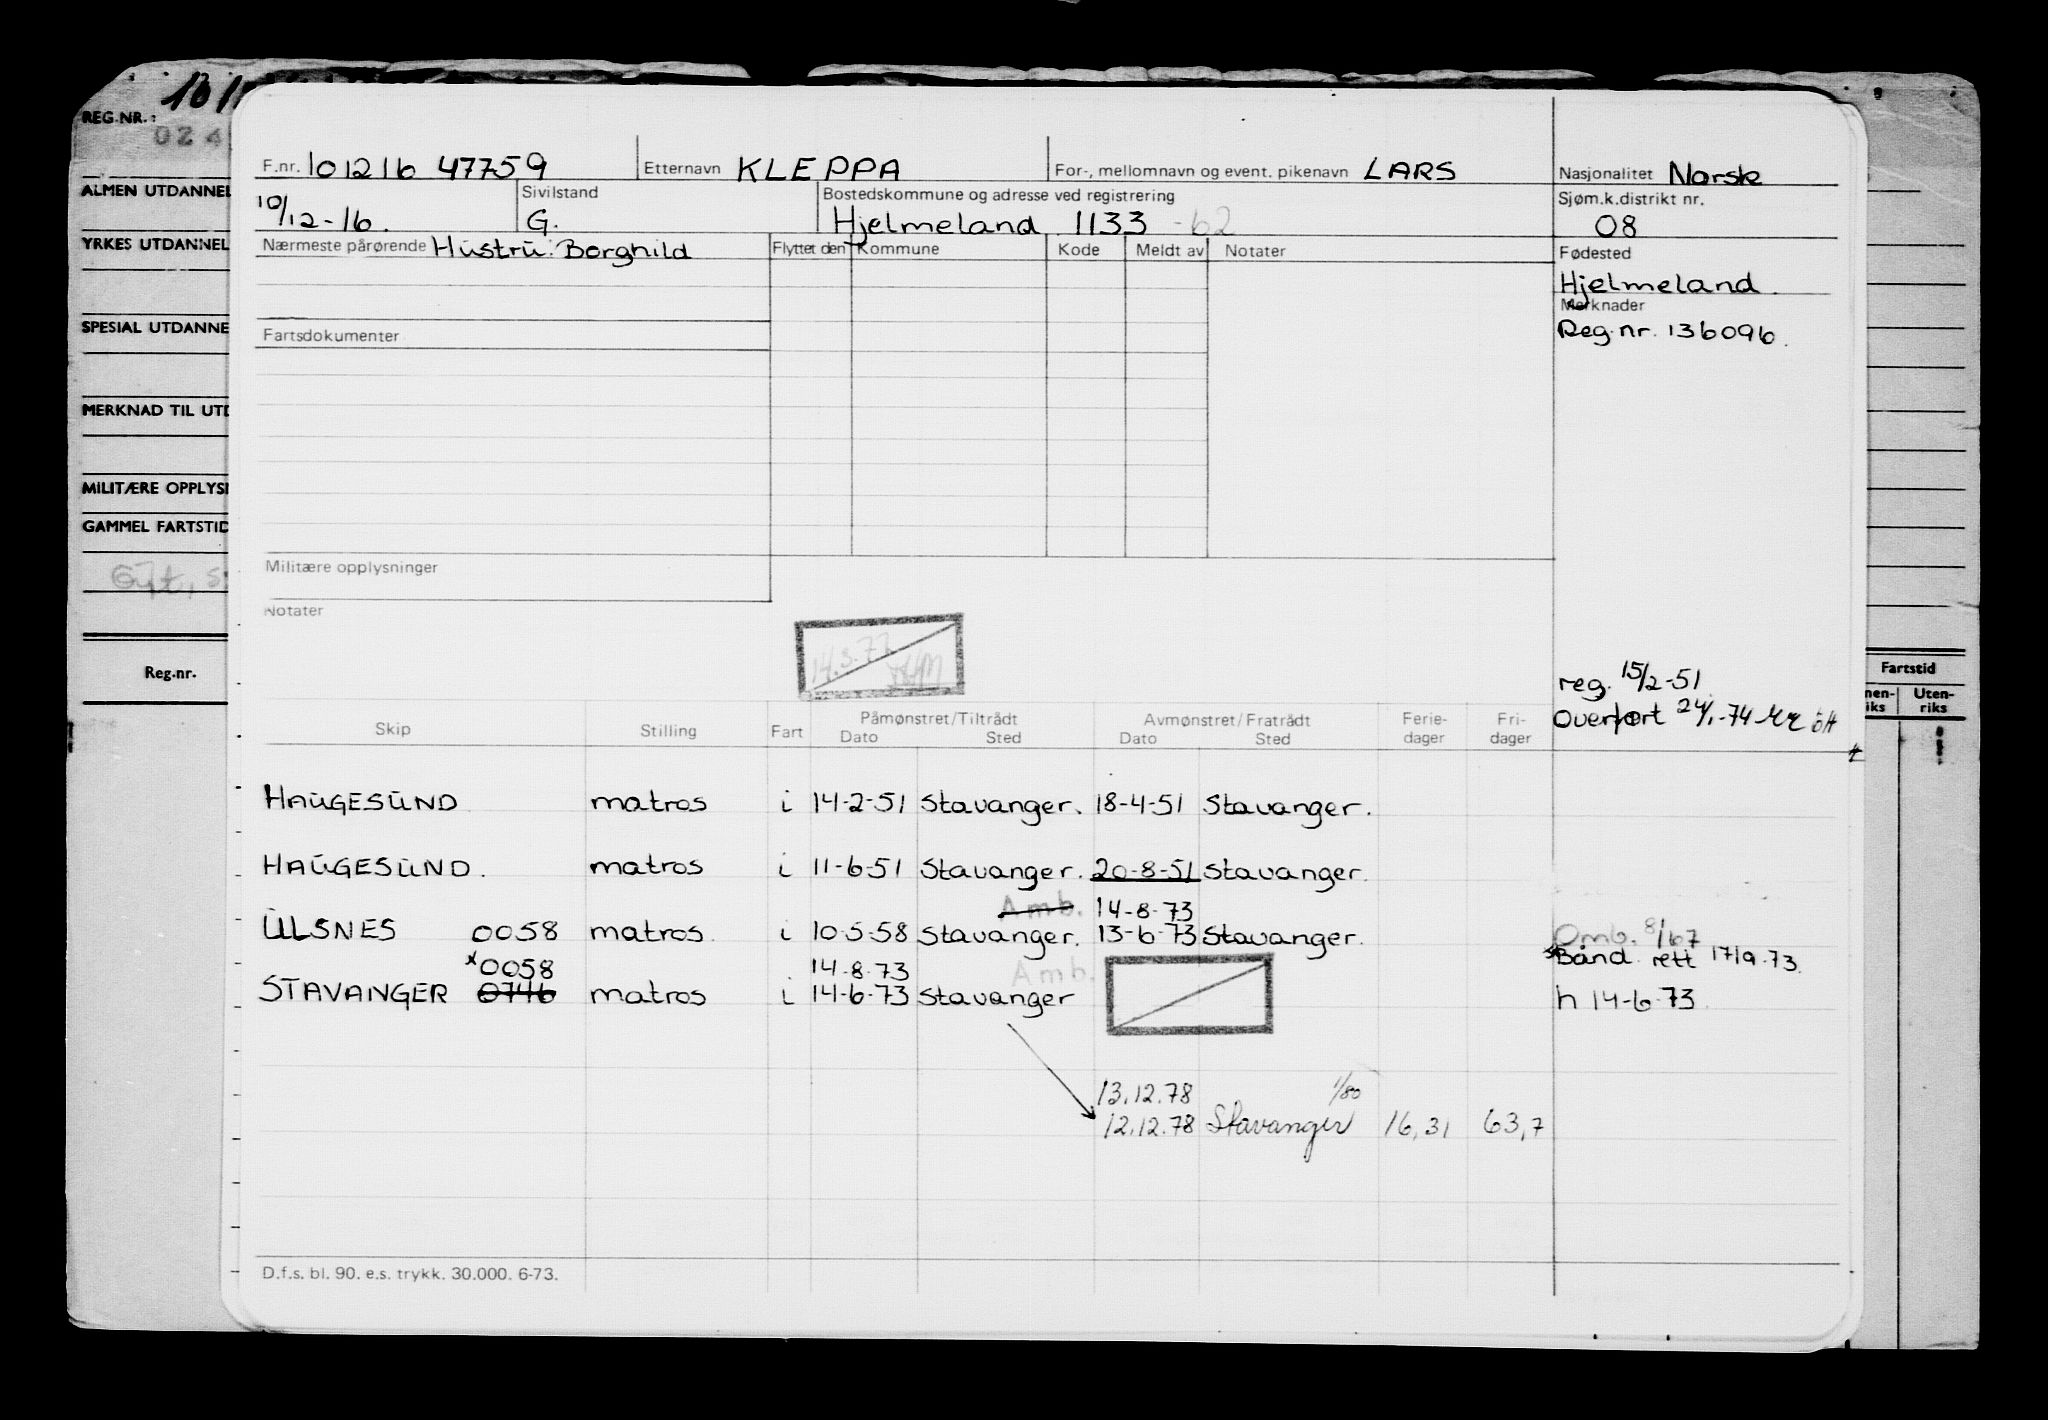 REG.NR.:
024
ALMEN UTDANNEL
YRKES UTDANNEL
SPESIAL UTDANNE
MERKNAD TIL UTD
MILITÆRE OPPLYSN
GAMMEL FARTSTID
Reg.nr.
F.nr. 101216 47759 Etternavn KLEPPA For-, mellomnavn og event. pikenavn LARS Nasjonalitet Norsk
10/12-16. Sivilstand G. Bostedskommune og adresse ved registrering Hjelmeland 1133 -62 Sjøm.k.distrikt nr. 08
Nærmeste pårørende Hustru: Borghild Flyttet den Kommune Kode Meldt av Notater Fødested
Hjelmeland.
Merknader
Reg.nr. 136096.
Fartsdokumenter
Militære opplysninger
Notater
14.3.77
reg. 15/2-51
Overført 24/1-74
Fartstid
nen-riks Uten-riks
Skip Stilling Fart Påmønstret/Tiltrådt Dato Sted Avmønstret/Fratrådt Dato Sted Ferie-dager Fri-dager
HAUGESUND matros i 14-2-51 Stavanger. 18-4-51 Stavanger.
HAUGESUND. matros i 11-6-51 Stavanger. 20-8-51 Stavanger.
Amb. 14-8-73
ULSNES 0058 matros. i 10-5-58 Stavanger. 13-6-73 Stavanger. Omb. 8/67
*0058 14-8-73 Amb. *Bånd rett 17/9-73.
STAVANGER 0746 matros i 14-6-73 Stavanger h 14-6-73.
13.12.78 1/80
12.12.78 Stavanger 16,31 63,7
D.f.s. bl. 90. e.s. trykk. 30.000. 6-73.